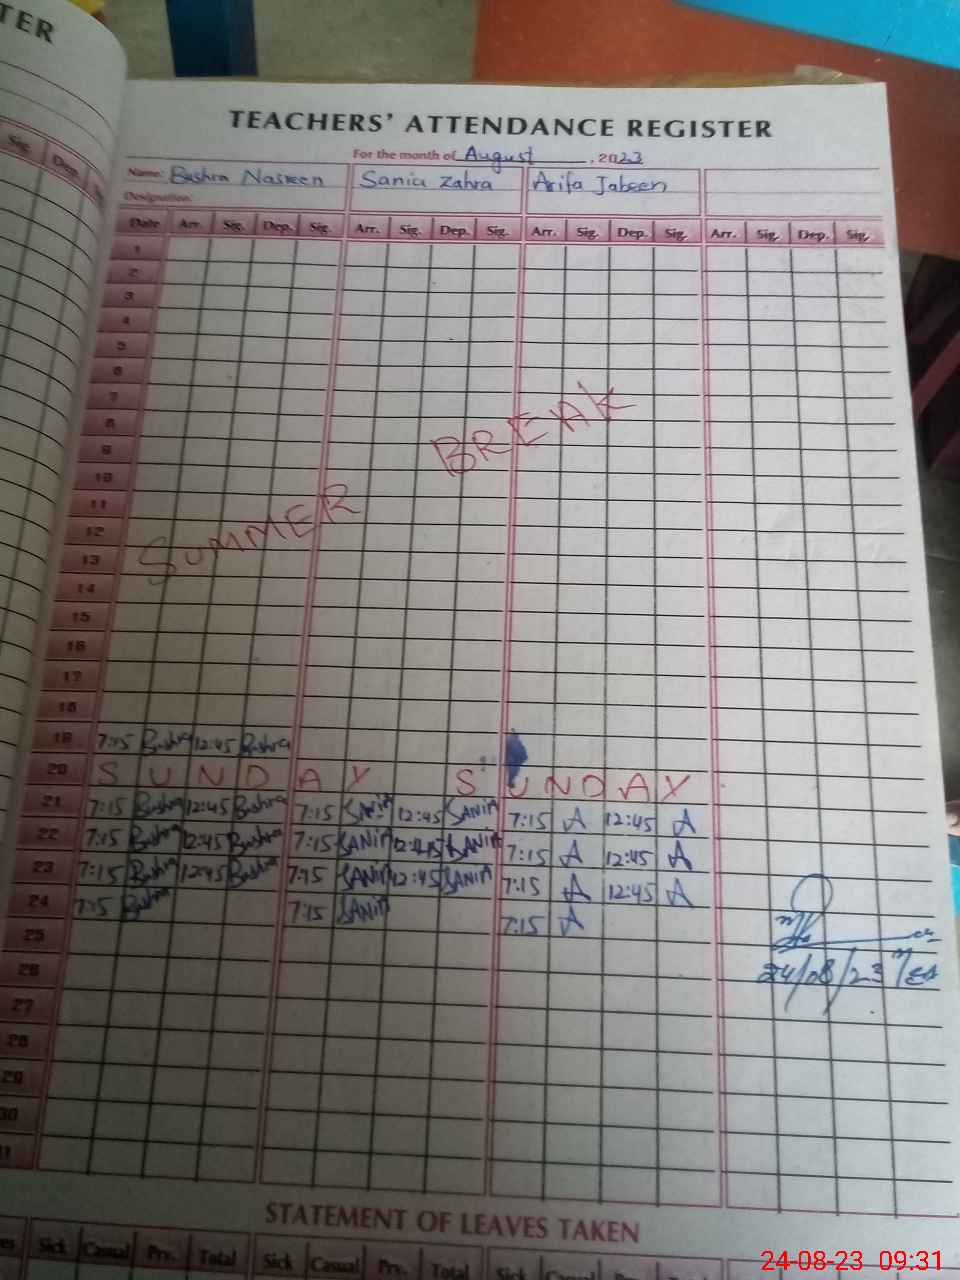 TER
TEACHERS' ATTENDANCE REGISTER
For the month of August, 2023
Name: Bushra Nasreen Sania Zahra Arifa Jabeen
Designation:
Sig. Dep. Date Arr. Sig. Dep. Sig. Arr. Sig. Dep. Sig. Arr. Sig. Dep. Sig. Arr. Sig. Dep. Sig.
1
2
3
4
5
6
7
8
9
10
11
12
13
SUMMER BREAK
14
15
16
17
18
19 7:15 Bushra 12:45 Bushra
20 SUNDAY SUNDAY
21 7:15 Bushra 12:45 Bushra 7:15 SANIA 12:45 SANIA 7:15 A 12:45 A
22 7:15 Bushra 12:45 Bushra 7:15 SANIA 12:45 SANIA 7:15 A 12:45 A
23 7:15 Bushra 12:45 Bushra 7:15 SANIA 12:45 SANIA 7:15 A 12:45 A
24 7:15 Bushra 7:15 SANIA 7:15 A
25
26 24/08/23
27
28
29
30
STATEMENT OF LEAVES TAKEN
Sick Casual Prv. Total Sick Casual Prv. Total Sick Casual Prv.
24-08-23 09:31